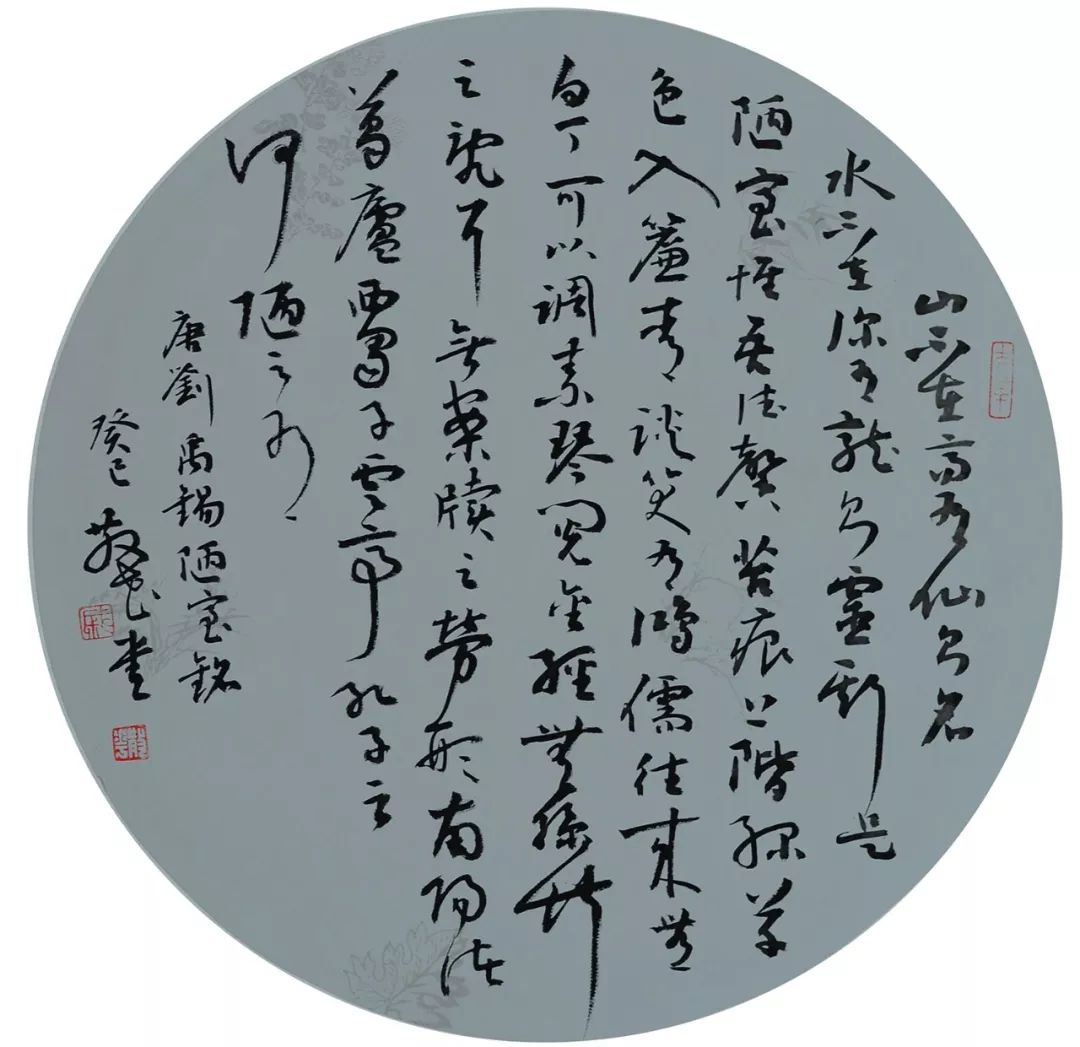 山不在高有仙则名
水不在深有龍则靈斯是
陋室惟吾德馨苔痕上階緑草
色入簾青談笑有鴻儒往來無
白丁可以調素琴閲金經無絲竹
之亂耳無案牘之勞形南陽諸
葛廬西蜀子雲亭孔子云
何陋之有
唐劉禹錫陋室銘
癸巳